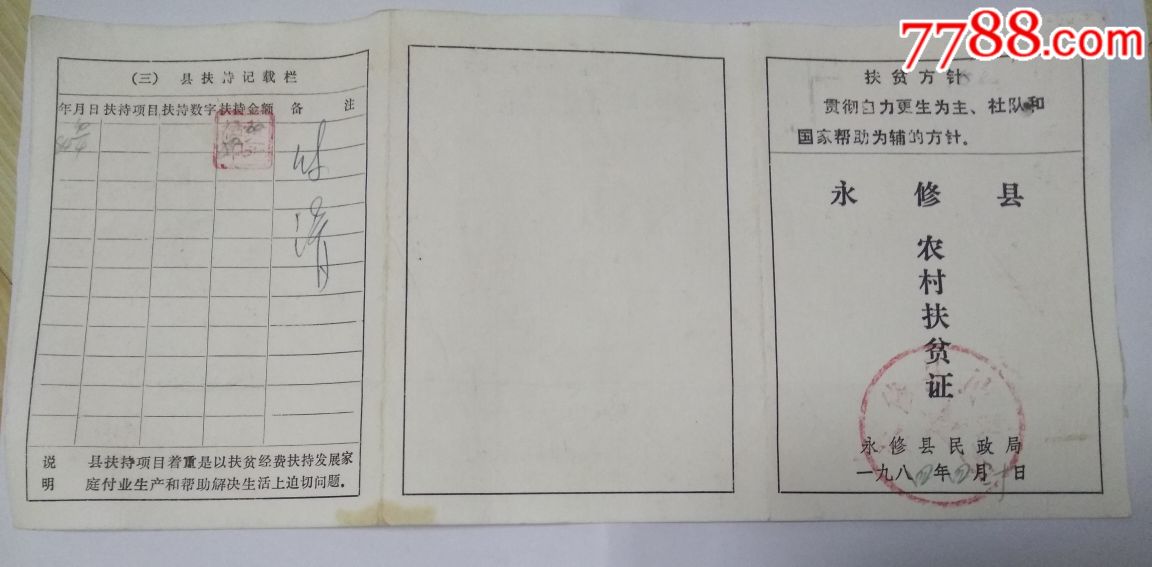 7788.com
(三) 县扶持记载栏
年月日 扶持项目 扶持数字 扶持金额 备 注
说明 县扶持项目着重是以扶贫经费扶持发展家
庭付业生产和帮助解决生活上迫切问题。
扶贫方针
贯彻自力更生为主、社队和
国家帮助为辅的方针。
永修县
农村扶贫证
永修县民政局
一九八四年四月 日